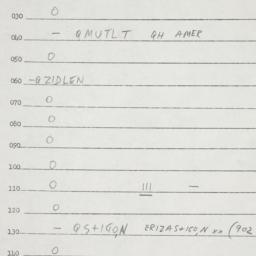 030 O
040 - QMUTLT QH AMER
050 O
060 -QZIDLEN
070 O
080 O
090 O
100 O
110 O III -
120 O
130 - QS+IGO,N ERIZAS+ICO,N xx (902
140 O